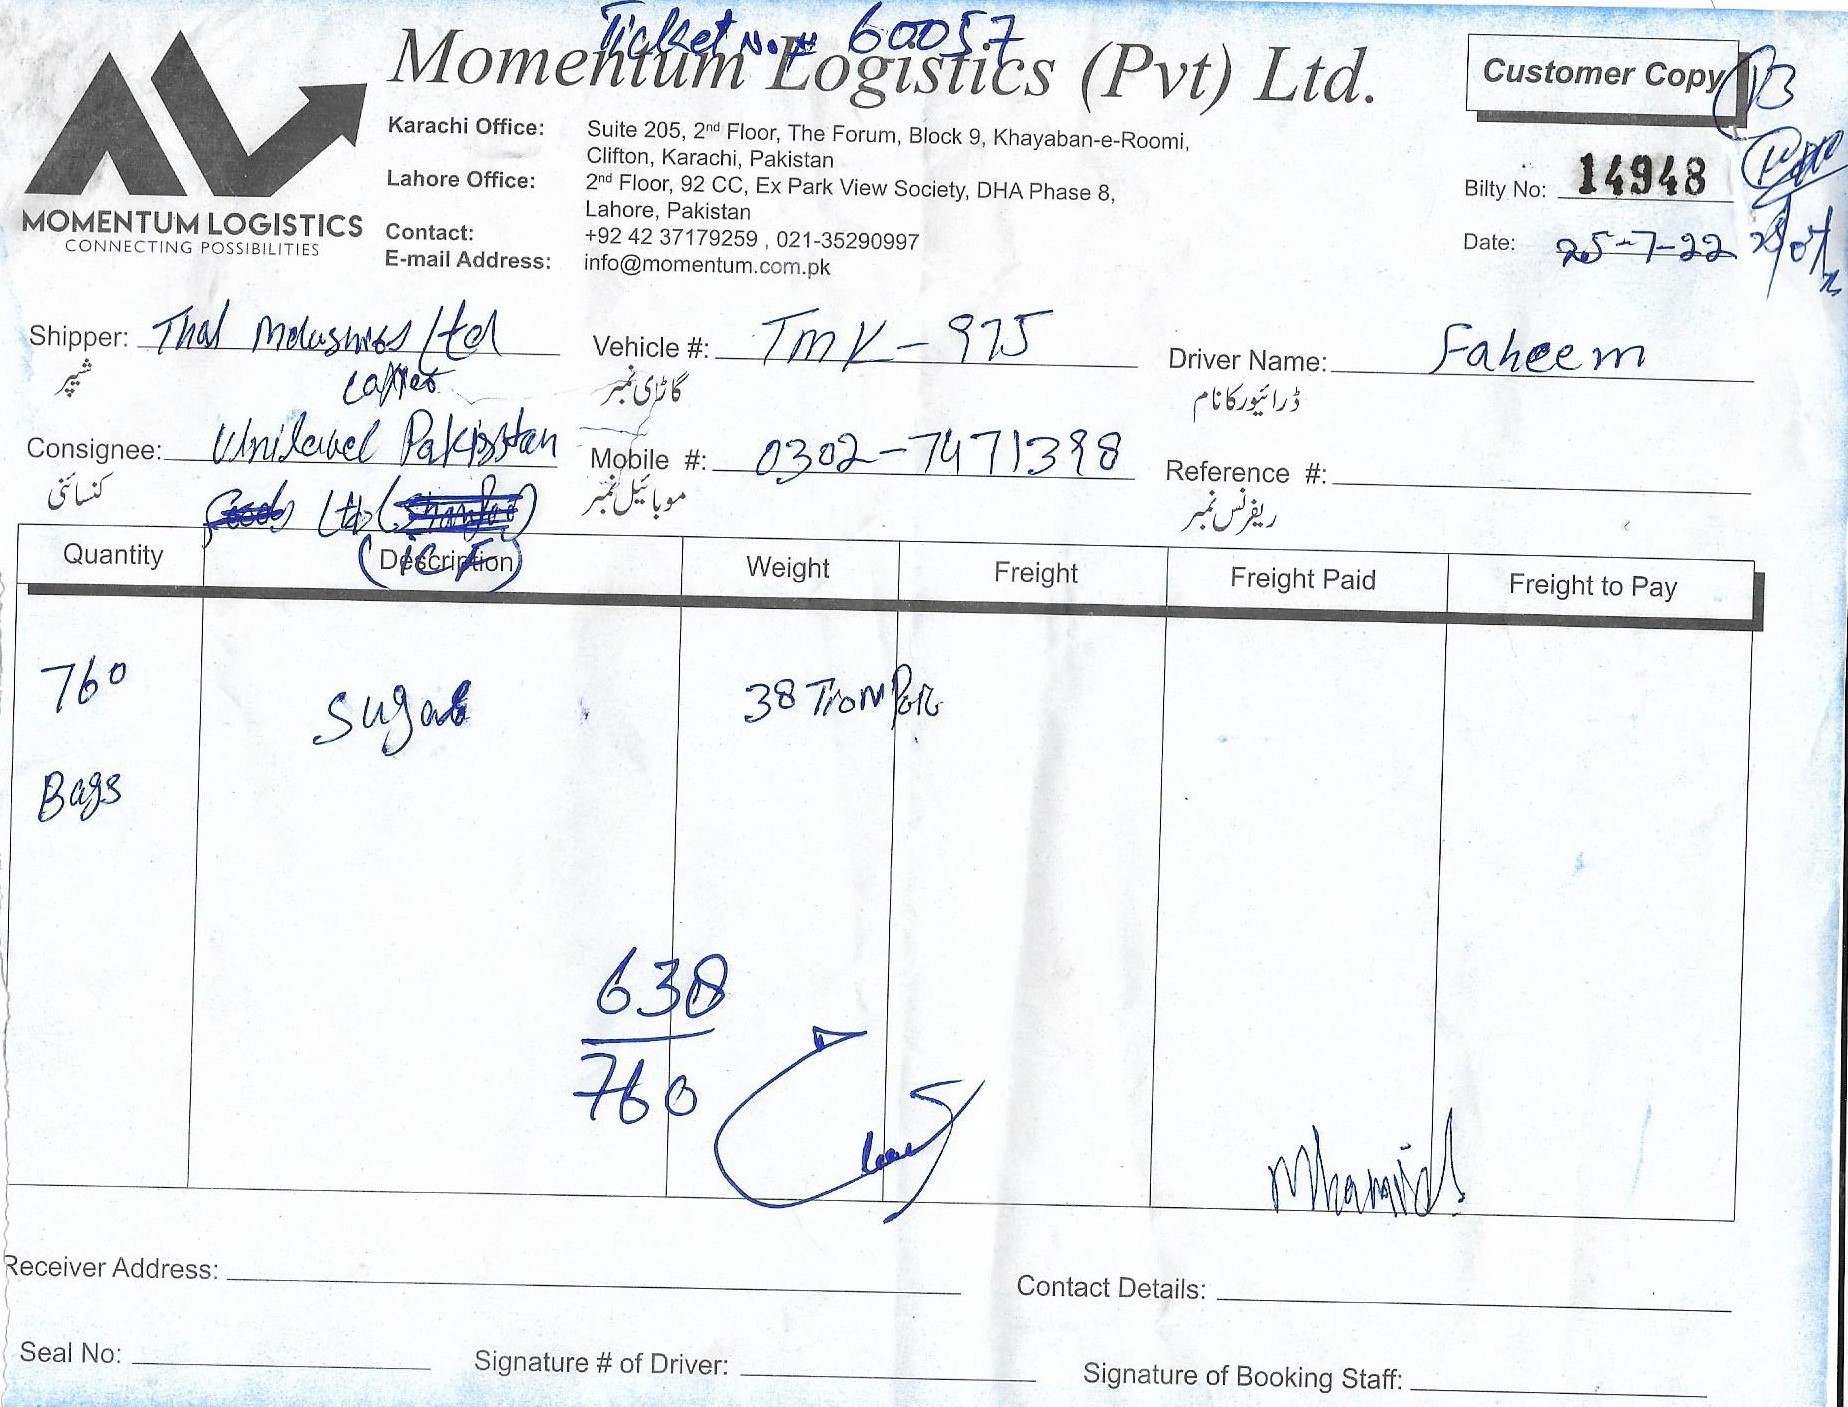 Ticket No# 60057
Momentum Logistics (Pvt) Ltd.
Customer Copy
MOMENTUM LOGISTICS
CONNECTING POSSIBILITIES
Karachi Office: Suite 205, 2nd Floor, The Forum, Block 9, Khayaban-e-Roomi,
Clifton, Karachi, Pakistan
Lahore Office: 2nd Floor, 92 CC, Ex Park View Society, DHA Phase 8,
Lahore, Pakistan
Contact: +92 42 37179259 , 021-35290997
E-mail Address: info@momentum.com.pk
Bilty No: 14948
Date: 25-7-22
Shipper: Thal Ltd Vehicle #: TMK-975 Driver Name: Faheem
شیپر گاڑی نمبر ڈرائیور کا نام
Consignee: Unilevel Pakistan Mobile #: 0302-7471398 Reference #:
کنسائنی موبائیل نمبر ریفرنس نمبر
Ltd
Quantity Description Weight Freight Freight Paid Freight to Pay
760 Sugar 38 Tron
Bags
638
760
Receiver Address: Contact Details:
Seal No: Signature # of Driver: Signature of Booking Staff: